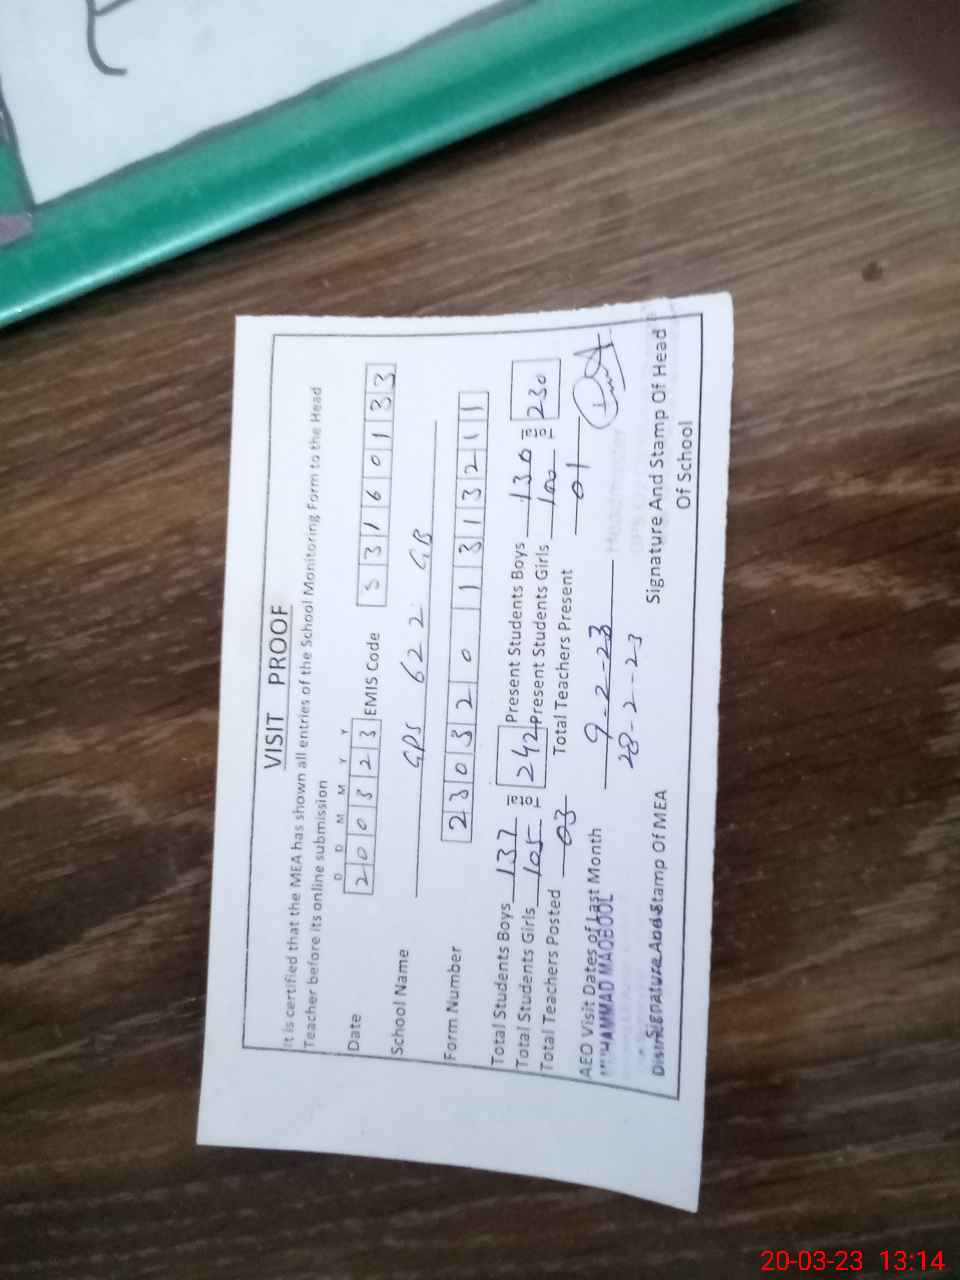 VISIT PROOF
It is certified that the MEA has shown all entries of the School Monitoring Form to the Head
Teacher before its online submission
D D M M Y Y
Date 200323 EMIS Code 33160133
School Name GPS 622 GB
Form Number 2303201313211
Total Students Boys 137 Present Students Boys 130
Total Students Girls 105 242 Present Students Girls 100 230
Total Teachers Posted 03 Total Teachers Present 01
AEO Visit Dates of Last Month 9-2-23
28-2-23
MUHAMMAD MAQBOOL
Signature And Stamp Of MEA Signature And Stamp Of Head
Of School
20-03-23 13:14